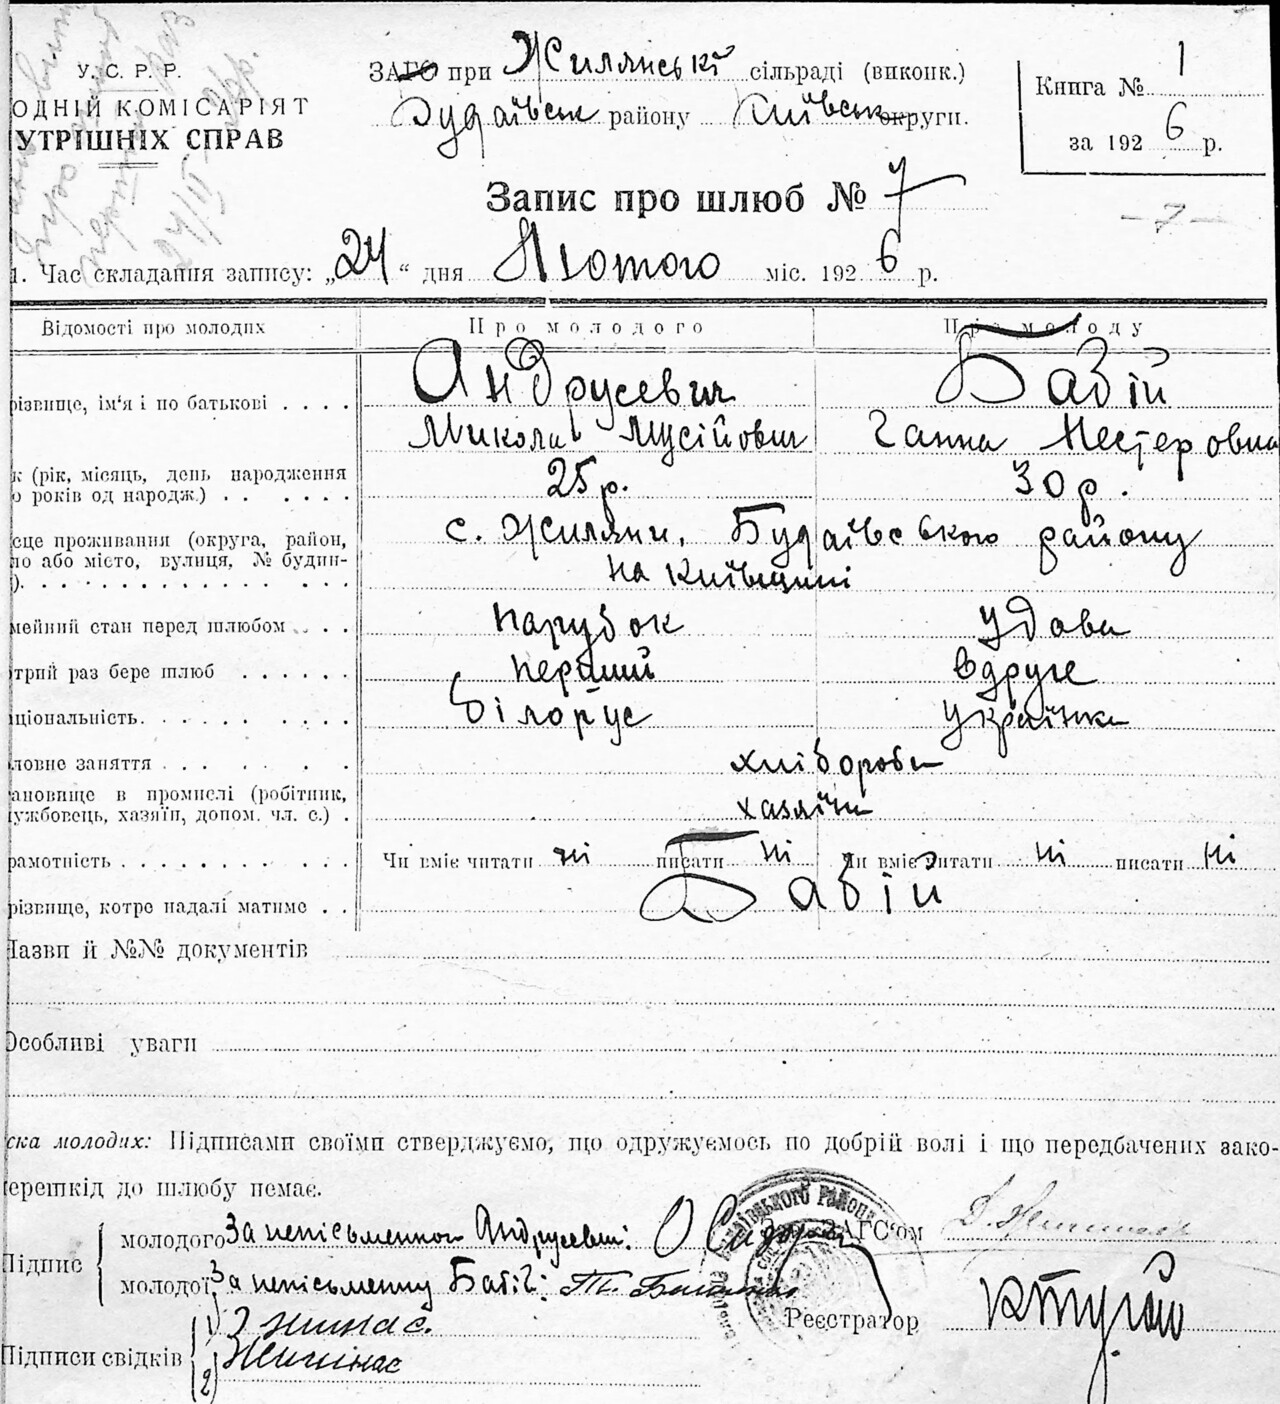 У. С. Р. Р.
ОДНІЙ КОМІСАРІЯТ
УТРІШНІХ СПРАВ
ЗАГС при Жилянські сільраді (виконк.)
Будаївськ району Київськ округи.
Книга № 1
за 1926 р.
Запис про шлюб № 7
— 7 —
1. Час складання запису: „24“ дня Лютого міс. 1926 р.
Відомості про молодих Про молодого Про молоду
різвище, ім'я і по батькові . . . . Андрусевич Бабій
Микола Мусійович Ганна Нестеровна
к (рік, місяць, день народження
о років од народж.) . . . . . . 25 р. 30 р.
сце проживання (округа, район, с. Жиляни, Будаївського району
ло або місто, вулиця, № будин- на Київщині
). . . . . . . . . . . . . .
мейний стан перед шлюбом . . . парубок удова
трий раз бере шлюб . . . . . . перший вдруге
ціональність. . . . . . . . . . білорус українка
ловне заняття . . . . . . . хлібороби
ановище в промислі (робітник,
ужбовець, хазяїн, допом. чл. с.) . хазяїни
рамотність . . . . . . . . . . Чи вміє читати ні писати ні Чи вміє читати ні писати ні
різвище, котре надалі матиме . . Бабій
Назви й №№ документів
Особливі уваги
ска молодих: Підписами своїми стверджуємо, що одружуємось по добрій волі і що передбачених зако-
ерешкід до шлюбу немає.
Підпис
молодого За неписьменного Андрусевич: Зав. ЗАГС'ом
молодої За неписьменну Бабій:
Реєстратор
Підписи свідків
1)
2)